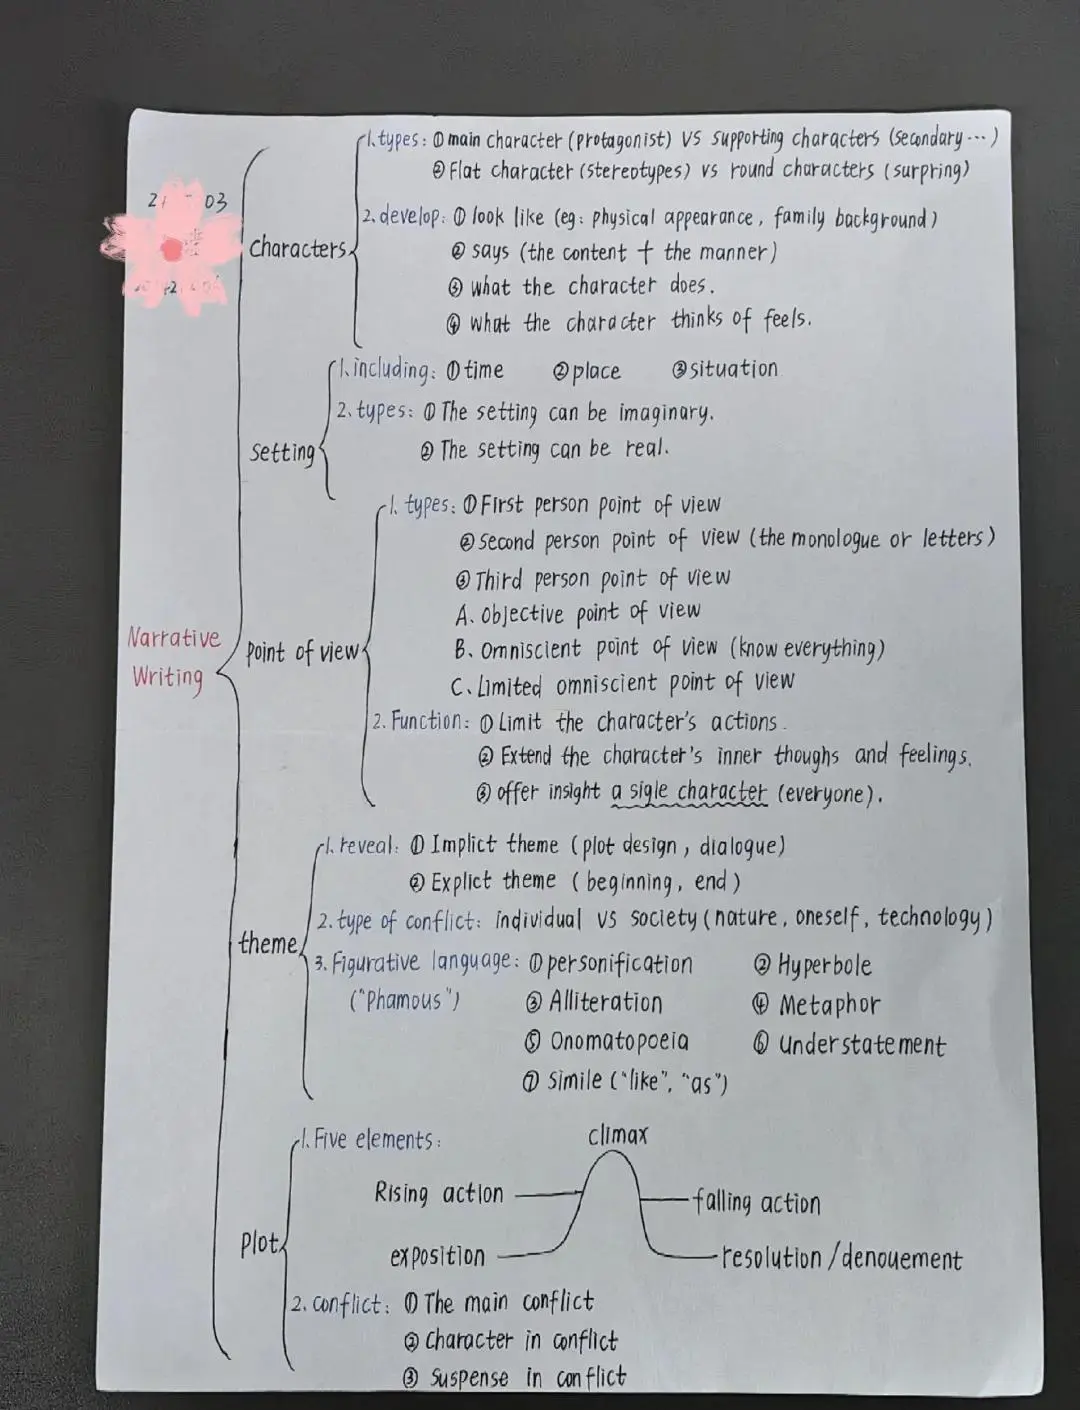 1. types: ① main character (protagonist) VS supporting characters (secondary ···)
② Flat character (stereotypes) vs round characters (surpring)
03
characters
2. develop: ① look like (eg: physical appearance, family background)
② says (the content + the manner)
③ what the character does.
④ what the character thinks of feels.
1. including: ① time ② place ③ situation
2. types: ① The setting can be imaginary.
setting
② The setting can be real.
1. types: ① First person point of view
② second person point of view (the monologue or letters)
③ Third person point of view
A. objective point of view
Narrative
Writing
point of view
B. omniscient point of view (know everything)
C. Limited omniscient point of view
2. Function: ① Limit the character's actions.
② Extend the character's inner thoughs and feelings.
③ offer insight a sigle character (everyone).
1. reveal: ① Implict theme (plot design, dialogue)
② Explict theme (beginning, end)
2. type of conflict: individual vs society (nature, oneself, technology)
theme
3. Figurative language: ① personification ② Hyperbole
("Phamous") ③ Alliteration ④ Metaphor
⑤ Onomatopoeia ⑥ Understatement
⑦ simile ("like", "as")
1. Five elements: climax
Rising action falling action
plot
exposition resolution/denouement
2. conflict: ① The main conflict
② character in conflict
③ suspense in conflict